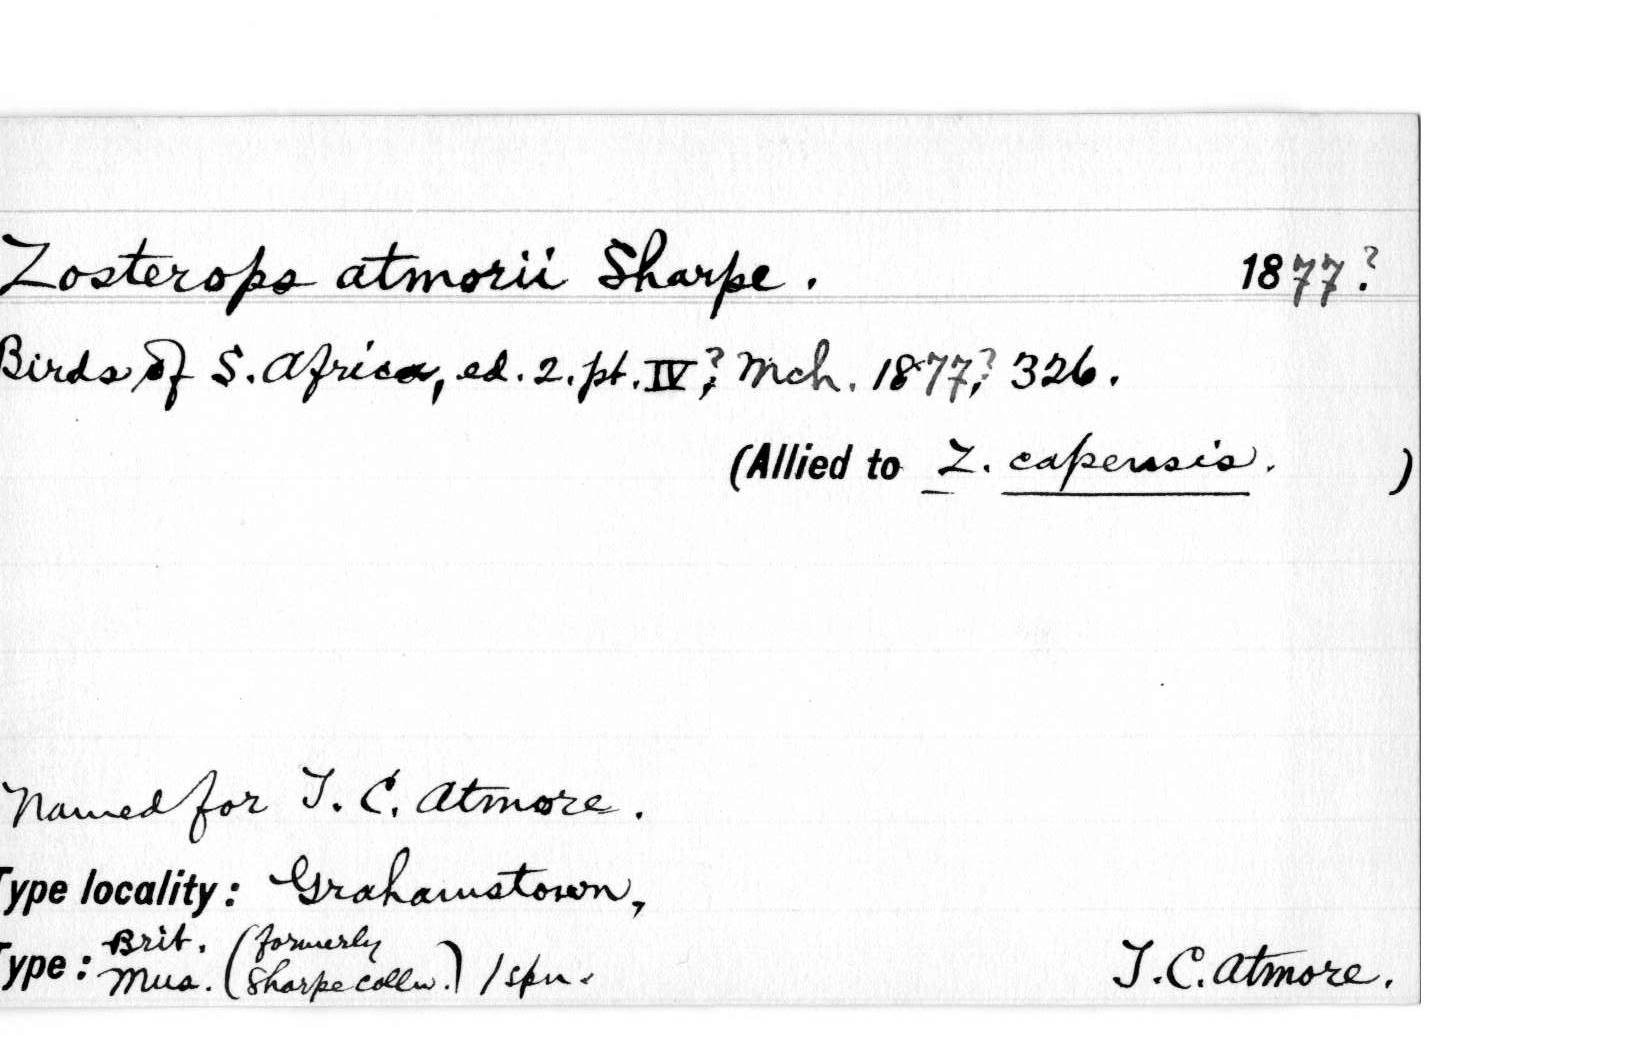 Zosterops atmorii Sharpe. 1877?
Birds of S. Africa, ed. 2. pt. IV?, Mch. 1877?, 326.
(Allied to Z. capensis. )
Named for J. C. Atmore.
Type locality: Grahamstown,
Type: Brit. Mus. (formerly Sharpe colln.) 1 spn.
J. C. Atmore.